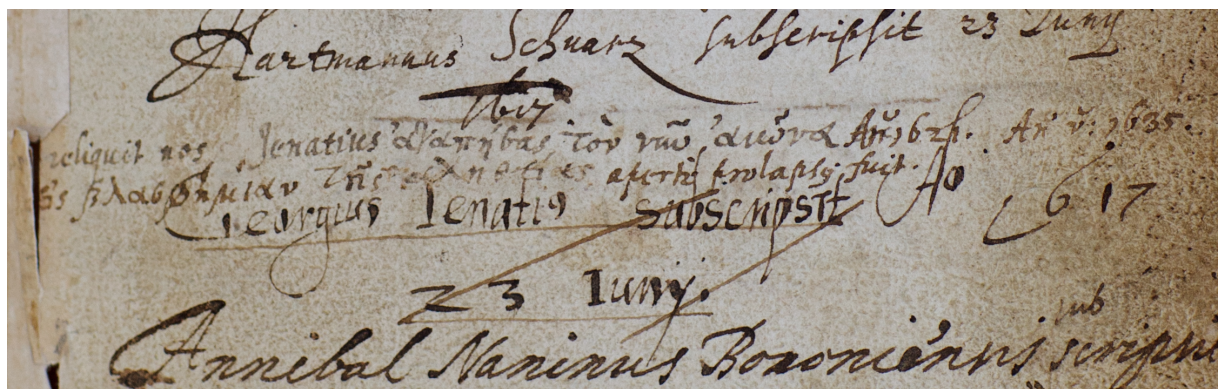 Hartmannus Schuarz subscripsit 23 Iunij
1617
reliquit nos Jenatius ἀγαπήσας τὸν νῦν αἰῶνα Añ. 1635.
βλασφημίαν τῆς ἀληθείας apertè prolapsus fuit.
Georgius Ienatius subscripsit Ao 1617
23 Iunij.
sub
Annibal Naninus Bononiensis scripsi